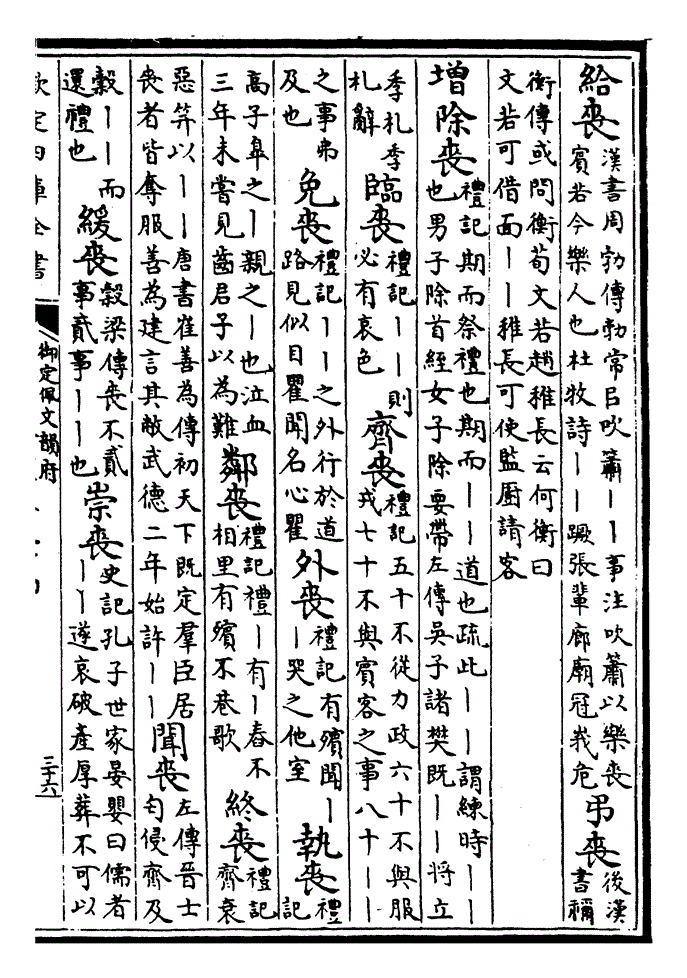 給喪
漢書周勃傳勃常㠯吹簫丨丨事注吹簫以樂喪
賓若今樂人也杜牧詩丨丨蹶張輩廊廟冠峩危
弔喪
後漢
書禰
衡傳或問衡荀文若趙稚長云何衡曰
文若可借面丨丨稚長可使監厨請客
增
除喪
禮記期而祭禮也期而丨丨道也疏此丨丨謂練時丨丨
也男子除首絰女子除要帶左傳吳子諸樊既丨丨將立
季札季
札辭
臨喪
禮記丨丨則
必有哀色
齊喪
禮記五十不從力政六十不與服
戎七十不與賓客之事八十丨丨
之事弗
及也
免喪
禮記丨丨之外行於道
路見似目瞿聞名心瞿
外喪
禮記有殯聞丨
丨哭之他室
執喪
禮
記
高子臯之丨親之丨也泣血
三年未嘗見齒君子以為難
鄰喪
禮記禮丨有丨舂不
相里有殯不巷歌
終喪
禮記
齊衰
惡筓以丨丨唐書崔善為傳初天下既定羣臣居
喪者皆奪服善為建言其敝武德二年始許丨丨
聞喪
左傳晉士
匄侵齊及
榖丨丨而
還禮也
緩喪
榖梁傳喪不貳
事貳事丨丨也
崇喪
史記孔子世家晏嬰曰儒者
丨丨遂哀破產厚葬不可以
欽定四庫全書
御定佩文韻府
三十六